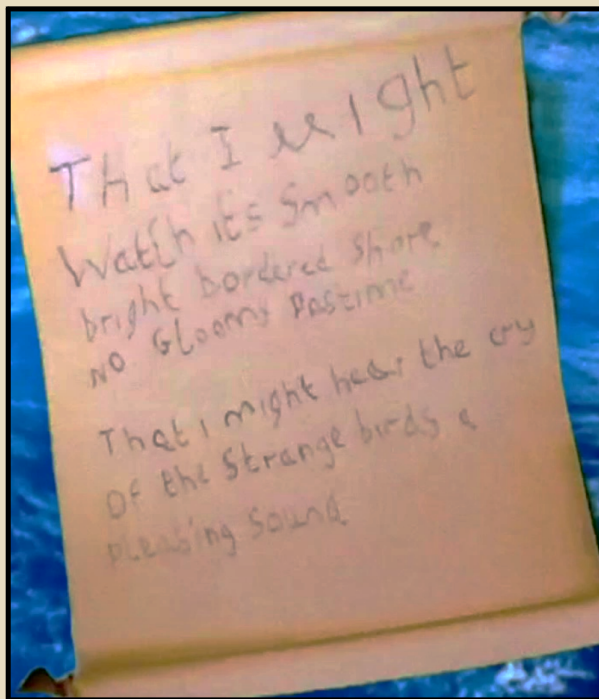 That I might
Watch its Smooth
bright bordered Shore
NO Gloomy Pastime
That I might hear the cry
OF the Strange birds a
pleasing Sound